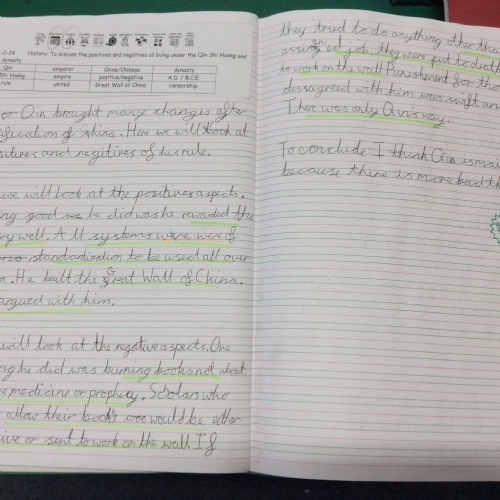 2-24
History: To discuss the positives and negatives of living under the Qin Shi Huang and
dynasty
Qin emperor China/Chinese dynasty
Shi Huang empire positive/negative A.D. / B.C.E.
rule united Great Wall of China censorship
or Qin brought many changes after
ification of china. Here we will look at
sitives and negitives of his rule.
we will look at the positive aspects.
ng good he did was he rewarded the
ry well. All systems were of
standardization to be used all over
a. He built the Great Wall of China.
argued with him.
will look at the negative aspects. One
ng he did was burning books not about
e medicine or prophecy. Scholars who
allow their books woo would be either
ive or sent to work on the wall. If
they tried to do anything other tha
assigned job, they were put to death
to work on the wall Punishment for tho
dissagreed with him was swift an
There was only Qin's way.
To conclude I think Qin is mai
because there is more bad th